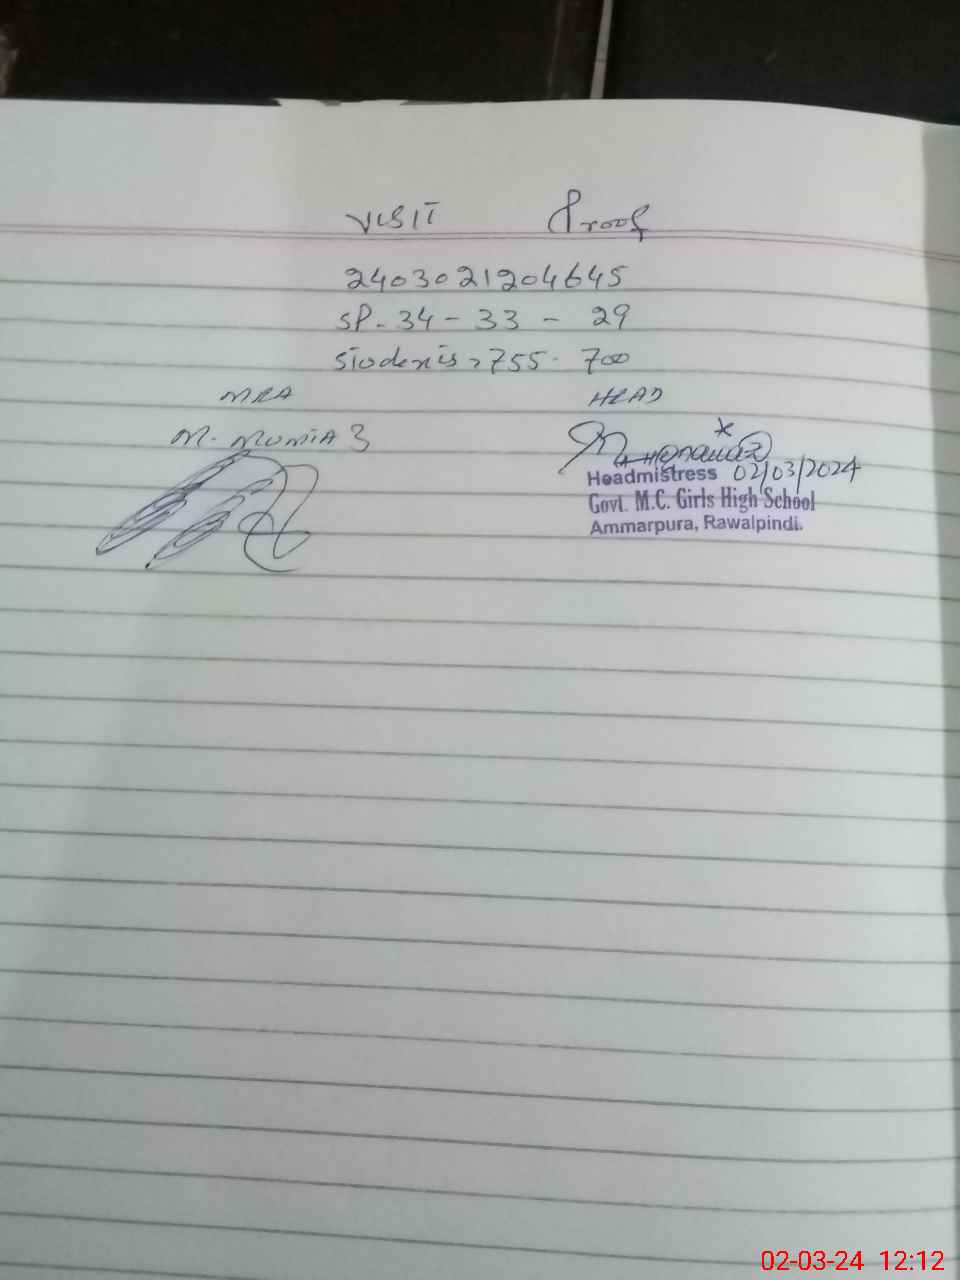 VISIT Proof
2403021204645
SP - 34 - 33 - 29
Students = 755 - 700
MEA HEAD
M. MUMTAZ
Headmistress 02/03/2024
Govt. M.C. Girls High School
Ammarpura, Rawalpindi.
02-03-24 12:12